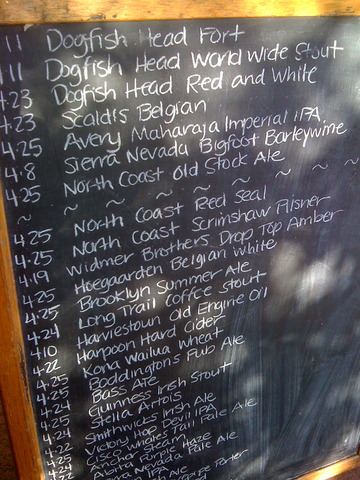 11 Dogfish Head Fort
11 Dogfish Head World Wide Stout
4.23 Dogfish Head Red and White
4.23 Scaldis Belgian
4.25 Avery Maharaja Imperial IPA
4.8 Sierra Nevada Bigfoot Barleywine
4.25 North Coast Old Stock Ale
~ ~ ~ ~ ~ ~ ~ ~
4.25 North Coast Red Seal
4.25 North Coast Scrimshaw Pilsner
4.19 Widmer Brothers Drop Top Amber
Hoegaarden Belgian White
4.25 Brooklyn Summer Ale
4.25 Long Trail Coffee Stout
4.24 Harviestown Old Engine Oil
4.10 Harpoon Hard Cider
4.22 Kona Wailua Wheat
4.25 Boddingtons Pub Ale
4.25 Bass Ale
4.24 Guinness Irish Stout
4.25 Stella Artois
4.24 Smithwicks Irish Ale
4.22 Victory Hop Devil IPA
4.25 Cisco Whales Tail Pale Ale
4.24 Anchor Steam
4.22 Abita Purple Haze
Nevada Pale Ale
Ale
Porter